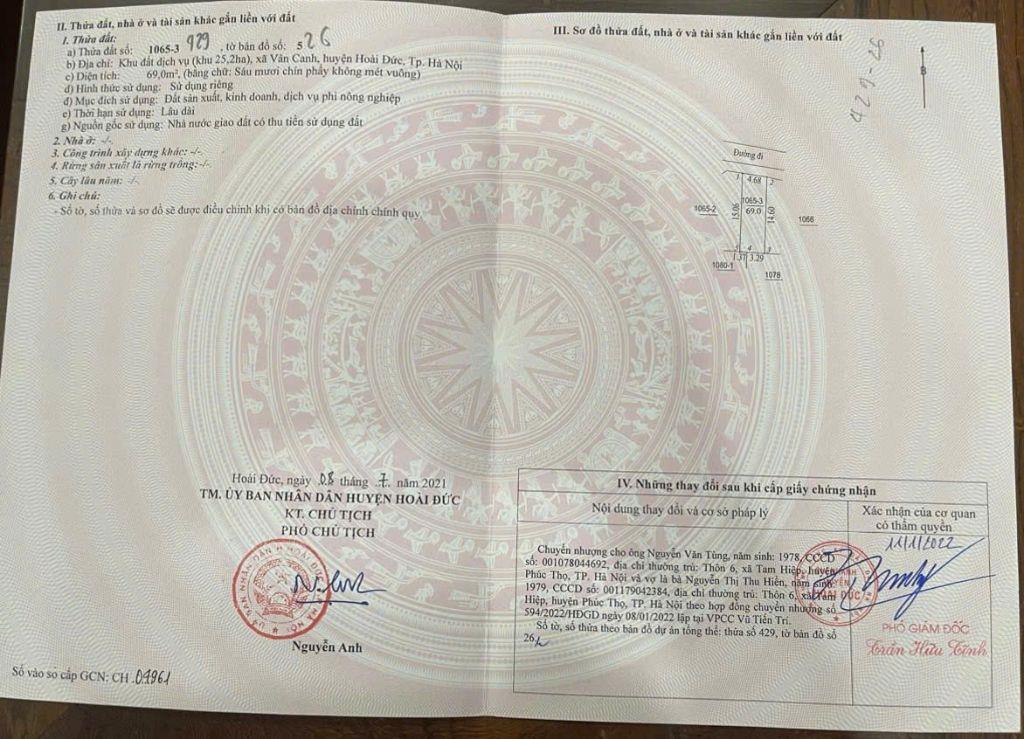 II. Thửa đất, nhà ở và tài sản khác gắn liền với đất
1. Thửa đất:
a) Thửa đất số: 1065-3 429, tờ bản đồ số: 5 26
b) Địa chỉ: Khu đất dịch vụ (khu 25,2ha), xã Vân Canh, huyện Hoài Đức, Tp. Hà Nội
c) Diện tích: 69,0m², (bằng chữ: Sáu mươi chín phẩy không mét vuông)
d) Hình thức sử dụng: Sử dụng riêng
đ) Mục đích sử dụng: Đất sản xuất, kinh doanh, dịch vụ phi nông nghiệp
e) Thời hạn sử dụng: Lâu dài
g) Nguồn gốc sử dụng: Nhà nước giao đất có thu tiền sử dụng đất
2. Nhà ở: -/-.
3. Công trình xây dựng khác: -/-.
4. Rừng sản xuất là rừng trồng:-/-.
5. Cây lâu năm: -/-.
6. Ghi chú:
- Số tờ, số thửa và sơ đồ sẽ được điều chỉnh khi có bản đồ địa chính chính quy.
Hoài Đức, ngày 08 tháng 7 năm 2021
TM. ỦY BAN NHÂN DÂN HUYỆN HOÀI ĐỨC
KT. CHỦ TỊCH
PHÓ CHỦ TỊCH
Nguyễn Anh
Số vào sổ cấp GCN: CH 07961
III. Sơ đồ thửa đất, nhà ở và tài sản khác gắn liền với đất
429-26
B
Đường đi
1 4.68 2
1065-2
15.06
1065-3
69.0
14.60
1066
5 4 3
1.37 3.29
1080-1
1078
IV. Những thay đổi sau khi cấp giấy chứng nhận
Nội dung thay đổi và cơ sở pháp lý
Xác nhận của cơ quan
có thẩm quyền
Chuyển nhượng cho ông Nguyễn Văn Tùng, năm sinh: 1978, CCCD
số: 001078044692, địa chỉ thường trú: Thôn 6, xã Tam Hiệp, huyện
Phúc Thọ, TP. Hà Nội và vợ là bà Nguyễn Thị Thu Hiền, năm sinh
1979, CCCD số: 001179042384, địa chỉ thường trú: Thôn 6, xã Tam
Hiệp, huyện Phúc Thọ, TP. Hà Nội theo hợp đồng chuyển nhượng số
594/2022/HĐGD ngày 08/01/2022 lập tại VPCC Vũ Tiến Trí.
Số tờ, số thửa theo bản đồ dự án tổng thể: thửa số 429, tờ bản đồ số
26
11/1/2022
PHÓ GIÁM ĐỐC
Trần Hữu Tĩnh